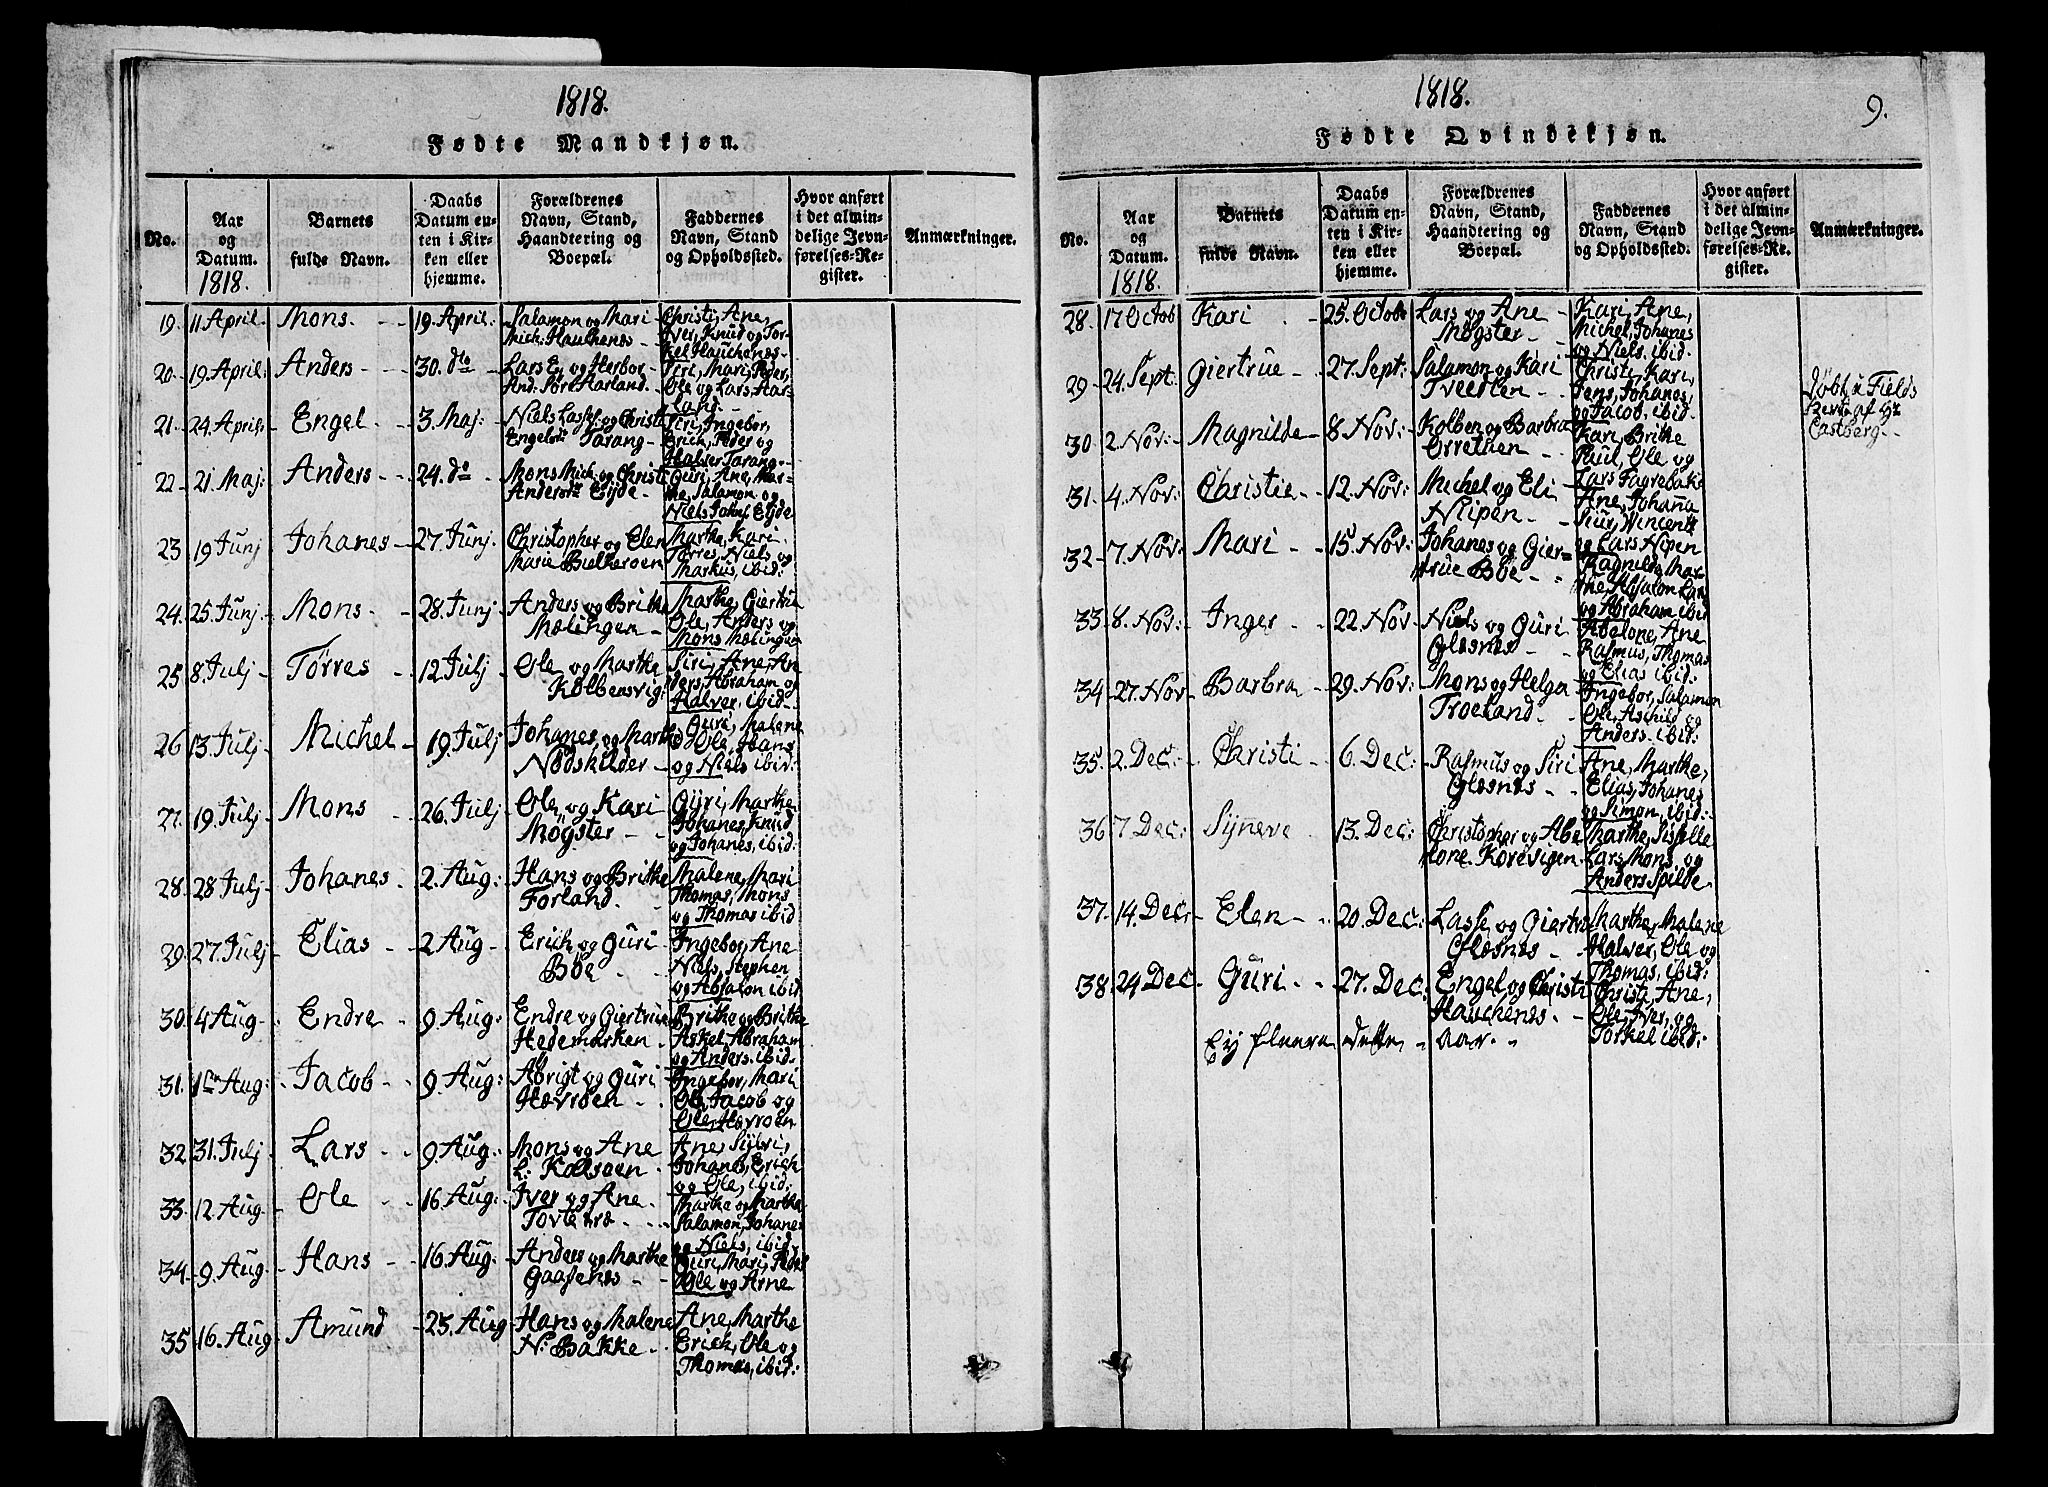 1818.
Fødte Mandkjøn.
No.
Aar
og
Datum.
1818.
Barnets
fulde Navn.
Daabs
Datum en-
ten i Kir-
ken eller
hjemme.
Forældrenes
Navn, Stand,
Haandtering og
Boepæl.
Faddernes
Navn, Stand
og Opholdssted.
Hvor anført
i det almin-
delige Jevn-
førelses-Re-
gister.
Anmærkninger.
19. 11 April. Mons. 19 April: Salamon og Mari
Mich: Hauchenes
Christi, Ane,
Iver, Knud og Tor-
kel Hauchenes.
20. 19 April: Anders 30. do Lars E. og Herbor
And: Søre Harland.
Siri, Mari, Peder,
Ole og Lars, Har-
land.
21. 24 April. Engel 3 Maj: Niels Lasses: og Christi
Engelsdr: Tarang
Siri, Ingebor,
Erich, Peder og
Halver Tarang.
22 21. Maj: Anders 24. do Mons Mich. og Christi
Andersdr Eÿde
Guri, Ane, Mar-
the, Salamon og
Niels Johns Eÿde
23 19 Junj Johanes 27 Junj. Christopher og Elen
Marie Bielkeroen
Marthe, Kari
Torres, Niels og
Markus, ibid:
24. 25. Junj. Mons. 28. Junj Anders og Brithe
Mælingen
Marthe, Giertrue
Ole, Anders og
Mons Mælingen
25 8 Julj Tørres 12 Julj Ole og Marthe
Kolbensvig:
Siri, Ane, An-
ders, Abraham og
Halver, ibid.
26 13. Julj Michel 19 Julj Johanes, og Marthe
Nødskilder
Guri, Malene
Ole, Hans
og Niels ibid:
27. 19. Julj Mons 26. Julj Ole og Kari
Møgster
Gijri, Marthe
Johanes, Knud
og Johanes, ibid:
28. 28 Julj Johanes. 2. Aug: Hans og Brithe
Forland.
Malene, Mari
Thomas, Mons
og Thomas ibid
29. 27. Julj Elias 2 Aug Erich og Guri
Bøe
Ingebor, Ane
Niels, Stephen
og Absalon ibid
30. 4 Aug. Endre 9 Aug: Endre og Giertrue
Hedemarken
Brithe og Brithe
Askel, Abraham
og Anders. ibid.
31. 1ste Aug: Jacob 9 Aug: Abrigt og Guri
Hævroen
Ingebor, Mari
Ole, Jacob og
Ole, Hævroen
32 31. Julj Lars 9. Aug: Mons og Ane
L: Kalsoen
Ane, Sÿlvi,
Johanes, Erich
og Ole, ibid:
33. 12 Aug. Ole 16 Aug: Iver og Ane
Torte
Marthe og Marthe
Salamon, Johanes
og Niels, ibid
34. 9. Aug Hans 16. Aug: Anders og Marthe
Gaasenes
Guri, Mari, Peder
Ole og Arne
35 16. Aug Amund 23. Aug Hans og Malene
N: Bakke
Ane, Marthe
Erich, Ole og
Thomas, ibid:
1818.
9.
Fødte Qvindekjøn.
No.
Aar
og
Datum.
1818.
Barnets
fulde Navn.
Daabs
Datum en-
ten i Kir-
ken eller
hjemme.
Forældrenes
Navn, Stand,
Haandtering og
Boepæl.
Faddernes
Navn, Stand
og Opholdssted.
Hvor anført
i det almin-
delige Jevn-
førelses-Re-
gister.
Anmærkninger.
28. 17 Octob Kari 25. Octob Lars og Ane
Møgster
Kari, Ane,
Michel, Johanes
og Niels. ibid.
29 24 Sept: Giertrue 27 Sept: Salamon og Kari
Tveedten
Christi, Kari,
Jens, Johanes,
og Jacob, ibid.
Døbt i Fields
Kerke af Hr
Castberg.
30 2. Nov: Magnilde 8. Nov: Kolben og Barbra
Orretuen
Kari, Brithe
Paul, Ole og
Lars Fagrebak
31. 4. Nov: Christie 12 Nov: Michel og Eli
Niipen
Ane, Johana
Siur, Wincents
og Lars Nipen
32 7. Nov: Mari 15. Nov: Johanes og Gier=
true Bøe
Ragnilde, Mar-
the, Absalon Lars
og Abraham, ibid
33. 8. Nov: Inger 22. Nov Niels og Guri
Glesnes
Abelone, Ane
Rasmus, Thomas
og Elias ibid:
34 27. Nov Barbra 29. Nov: Mons og Helga
Troeland
Ingebor, Salamon
Ole, Aschild og
Anders. ibid:
35. 2. Dec: Christi 6. Dec: Rasmus og Siri
Glesnes
Ane, Marthe,
Elias, Johanes
og Simon, ibid:
36 7. Dec: Sÿneve 13. Dec: Christopher og Abe
lone Korsvigen
Marthe, Sisille
Lars, Mons, og
Anders Spilde
37. 14. Dec: Elen 20. Dec: Lasse og Giertru
Glesnes
Marthe, Malene
Halver, Ole og
Thomas, ibid:
38. 24 Dec Guri 27. Dec: Engel og Christi
Hauchenes
Christi, Ane,
Ole, Iver, og
Torkel ibid:
Eij fleere dette aar.